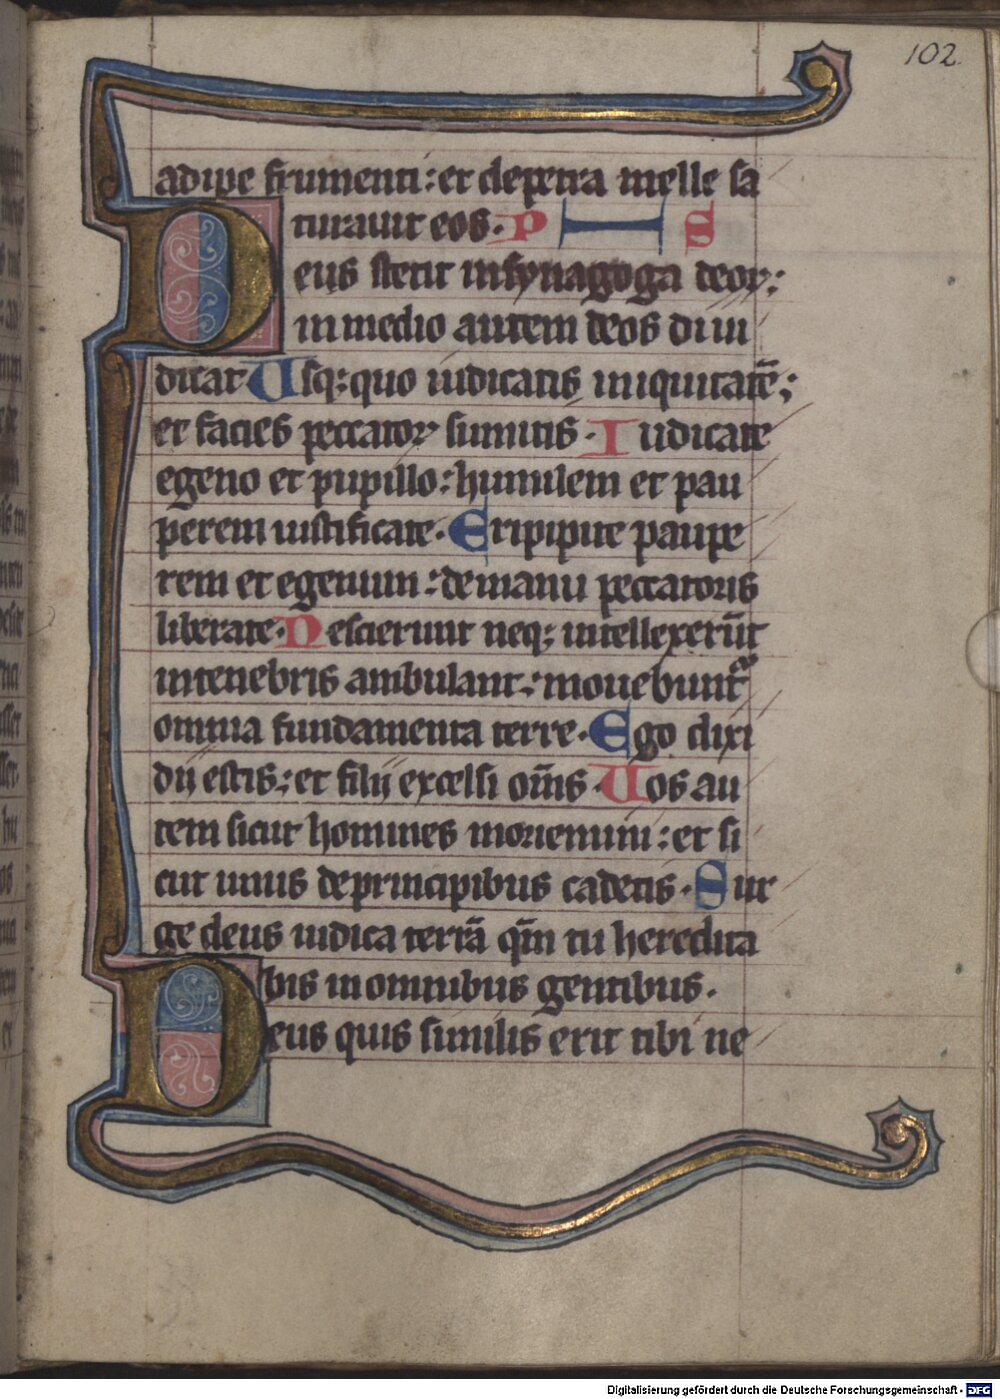 102.
adipe frumenti: et depetra melle sa
turauit eos. P H S
Deus stetit insynagoga deoꝝ:
inmedio autem deos diiu
dicat Usqꝫquo iudicatis iniquitatē;
et facies peccatoꝝ sumitis. Iudicate
egeno et pupillo: humilem et pau
perem iustificate. Eripipite paupe
rem et egenum: demanu peccatoris
liberate. Nescierunt neqꝫ intellexerūt
intenebris ambulant: mouebuntᷣ
omnia fundamenta terre. Ego dixi
dii estis: et filii excelsi om̄s. Uos au
tem sicut homines moriemini: et si
cut unus deprincipibus cadetis. Sur
ge deus iudica terrā qm̄ tu heredita
bis inomnibus gentibus.
Deus quis similis erit tibi ne
Digitalisierung gefördert durch die Deutsche Forschungsgemeinschaft - DFG